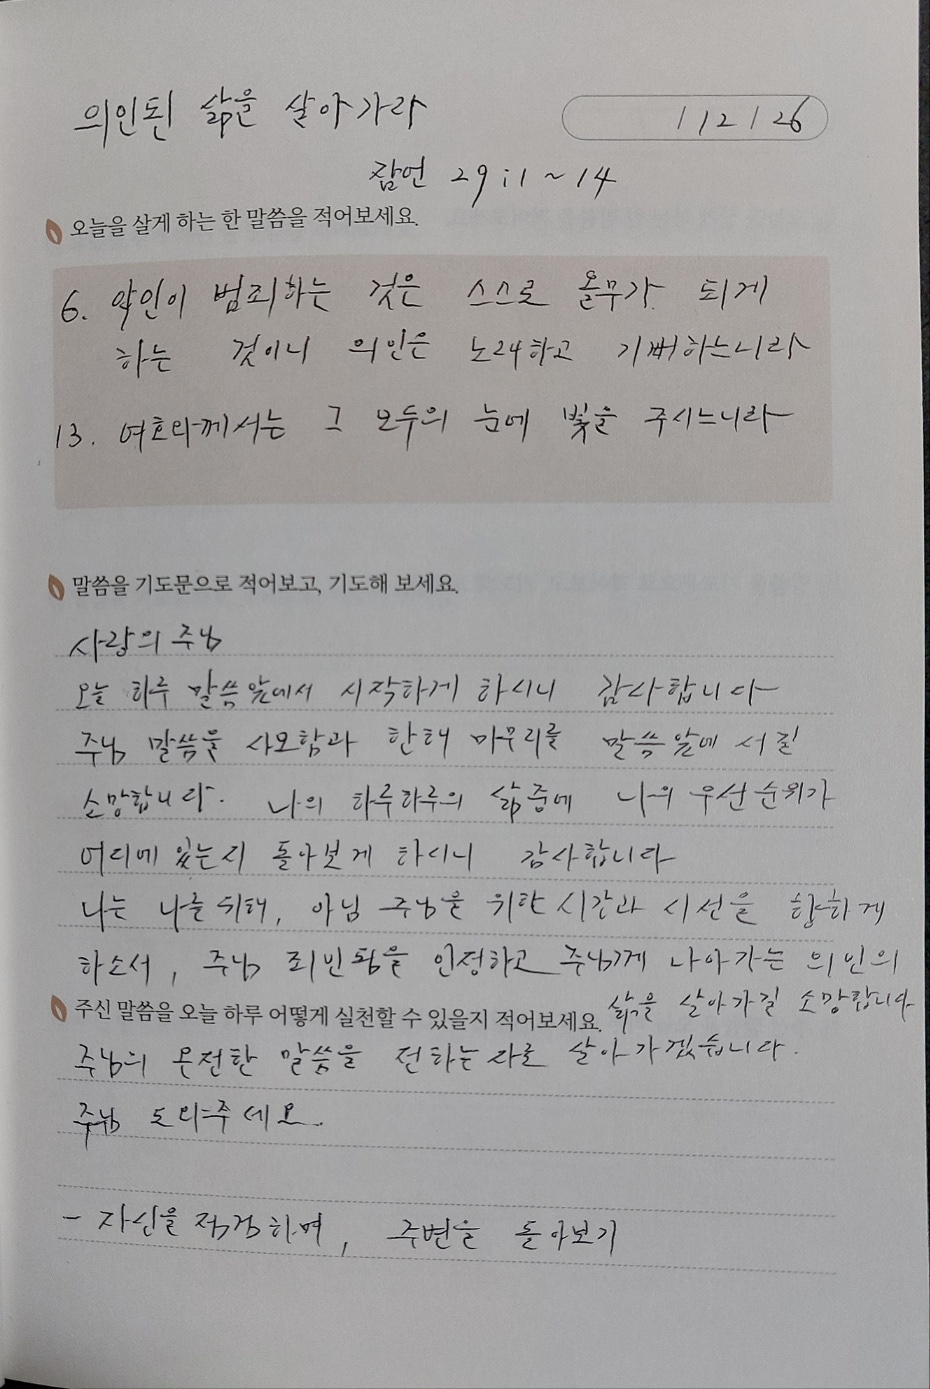 의인된 삶을 살아가라
1/12/26
잠언 29:1~14
오늘을 살게 하는 한 말씀을 적어보세요.
6. 악인이 범죄하는 것은 스스로 올무가 되게
하는 것이니 의인은 노래하고 기뻐하느니라
13. 여호와께서는 그 모두의 눈에 빛을 주시느니라
말씀을 기도문으로 적어보고, 기도해 보세요.
사랑의 주님
오늘 하루 말씀앞에서 시작하게 하시니 감사합니다
주님 말씀을 사모함과 한해 마무리를 말씀앞에 서길
소망합니다. 나의 하루하루의 삶중에 나의 우선순위가
어디에 있는지 돌아보게 하시니 감사합니다
나는 나를위해, 아님 주님을 위한 시간과 시선을 향하게
하소서, 주님 죄인됨을 인정하고 주님께 나아가는 의인의
삶을 살아가길 소망합니다
주신 말씀을 오늘 하루 어떻게 실천할 수 있을지 적어보세요.
주님의 온전한 말씀을 전하는 자로 살아가겠습니다.
주님 도와주세요.
- 자신을 점검하며, 주변을 돌아보기